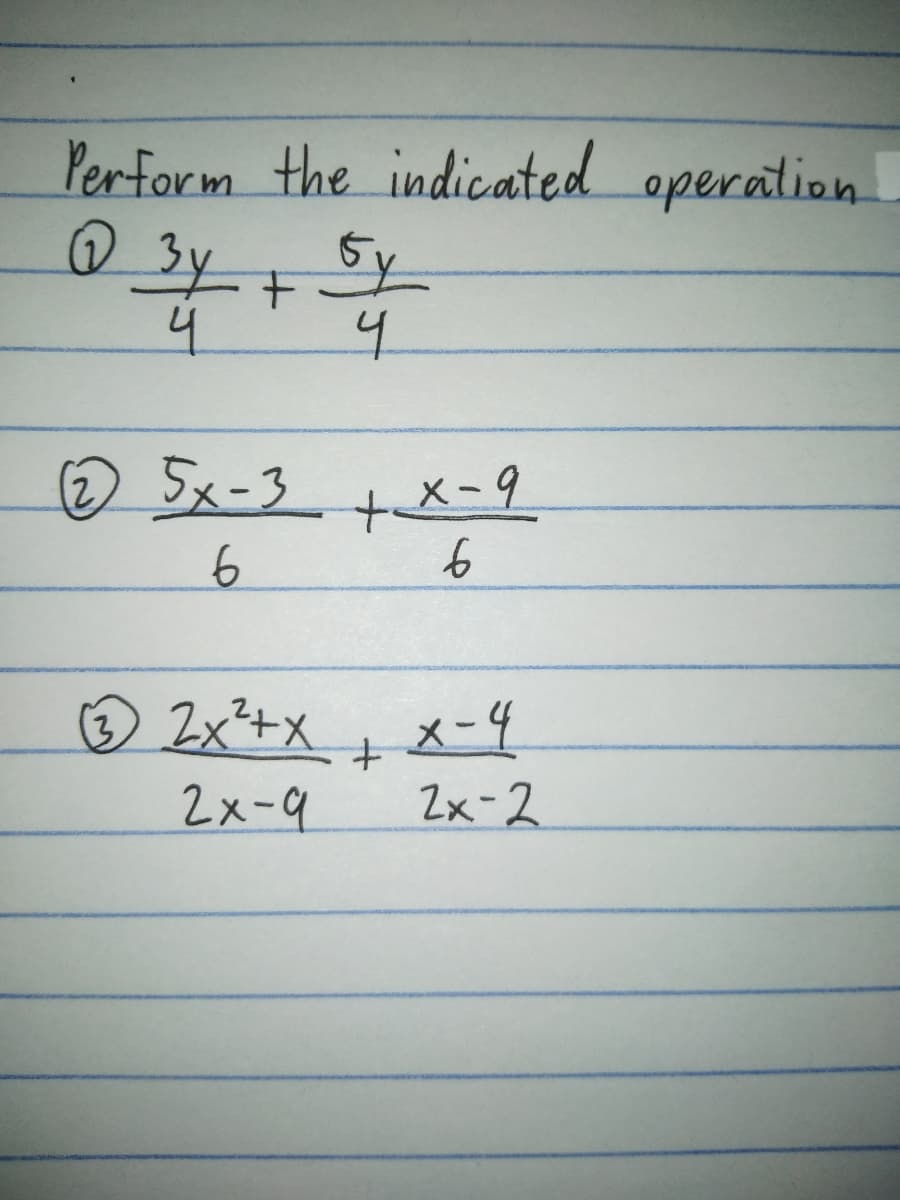 Perform the indicated operation
① 3y/4 + 5y/4
② 5x-3/6 + x-9/6
③ 2x²+x/2x-9 + x-4/2x-2